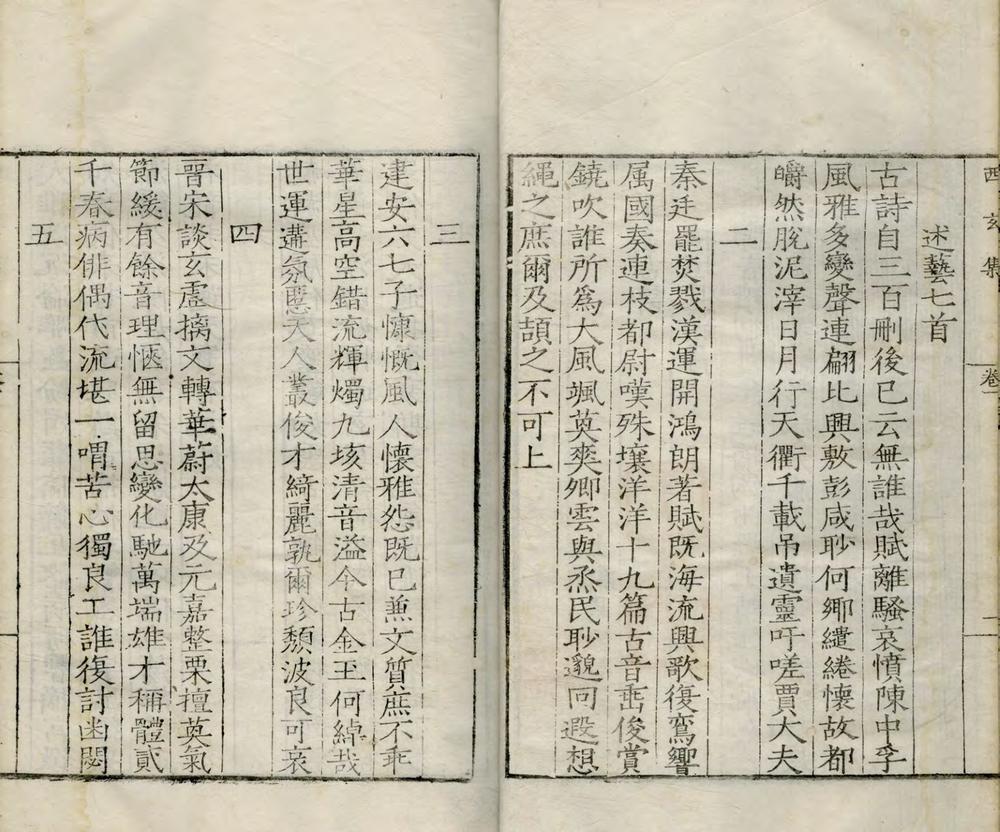 西玄集
卷一
二
述藝七首
古詩自三百刪後已云無誰哉賦離騷哀憤陳中孚
風雅多變聲連翩比興敷彭咸眇何鄉繾綣懷故都
皭然脫泥滓日月行天衢千載吊遺靈吁嗟賈大夫
二
秦廷罷焚戮漢運開鴻朗著賦既海流興歌復鸞響
属國奏連枝都尉嘆殊壤洋洋十九篇古音啚俊賞
鐃吹誰所爲大風颯英爽卿雲與烝民眇邈同遐想
繩之庶爾及頡之不可上
三
建安六七子慷慨風人懷雅怨既已兼文質庶不乖
華星高空錯流輝燭九垓清音溢今古金玉何綽哉
世運遘氛慝天人叢俊才綺麗孰爾珍頹波良可哀
四
晉宋談玄虛摛文轉華蔚太康及元嘉整栗擅英氣
節緩有餘音理愜無留思變化馳萬端雄才稱體貳
千春病俳偶代流堪一喟苦心獨良工誰復討幽閟
五